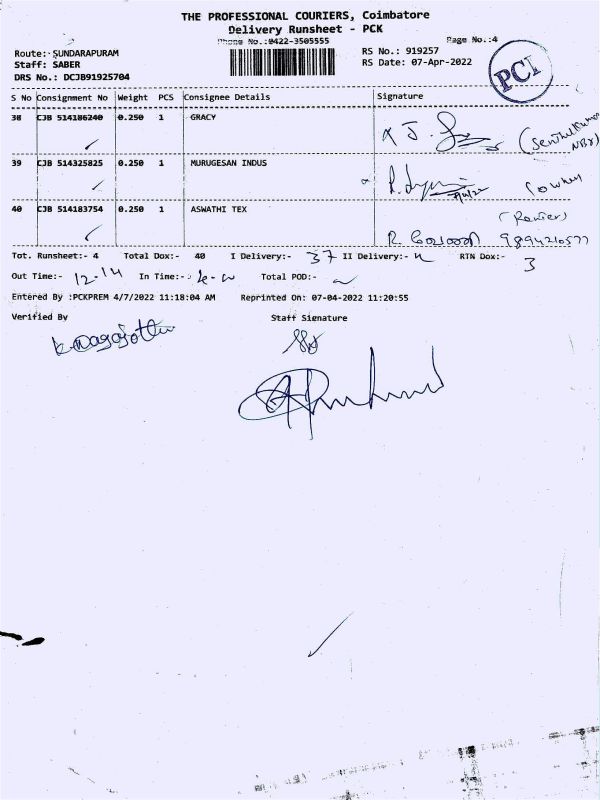 THE PROFESSIONAL COURIERS, Coimbatore
Delivery Runsheet - PCK
Phone No.:0422-3505555
Page No.:4
Route: SUNDARAPURAM
RS No.: 919257
Staff: SABER
RS Date: 07-Apr-2022
DRS No.: DCJB91925704
PCI
S No Consignment No Weight PCS Consignee Details Signature
38 CJB 514186240 0.250 1 GRACY
39 CJB 514325825 0.250 1 MURUGESAN INDUS
40 CJB 514183754 0.250 1 ASWATHI TEX
9894216577
Tot. Runsheet:- 4 Total Dox:- 40 I Delivery:- 37 II Delivery:- RTN Dox:- 3
Out Time:- 12-14 In Time:- Total POD:-
Entered By :PCKPREM 4/7/2022 11:18:04 AM Reprinted On: 07-04-2022 11:20:55
Verified By Staff Signature